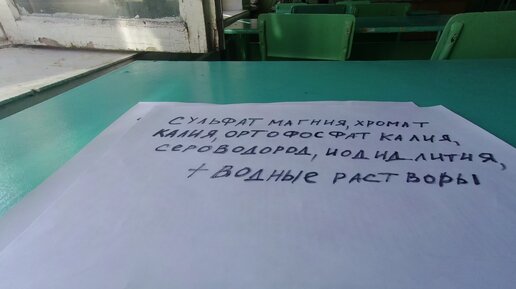 СУЛЬФАТ МАГНИЯ, ХРОМАТ
КАЛИЯ, ОРТОФОСФАТ КАЛИЯ,
СЕРОВОДОРОД, ИОДИД ЛИТИЯ,
+ ВОДНЫЕ РАСТВОРЫ